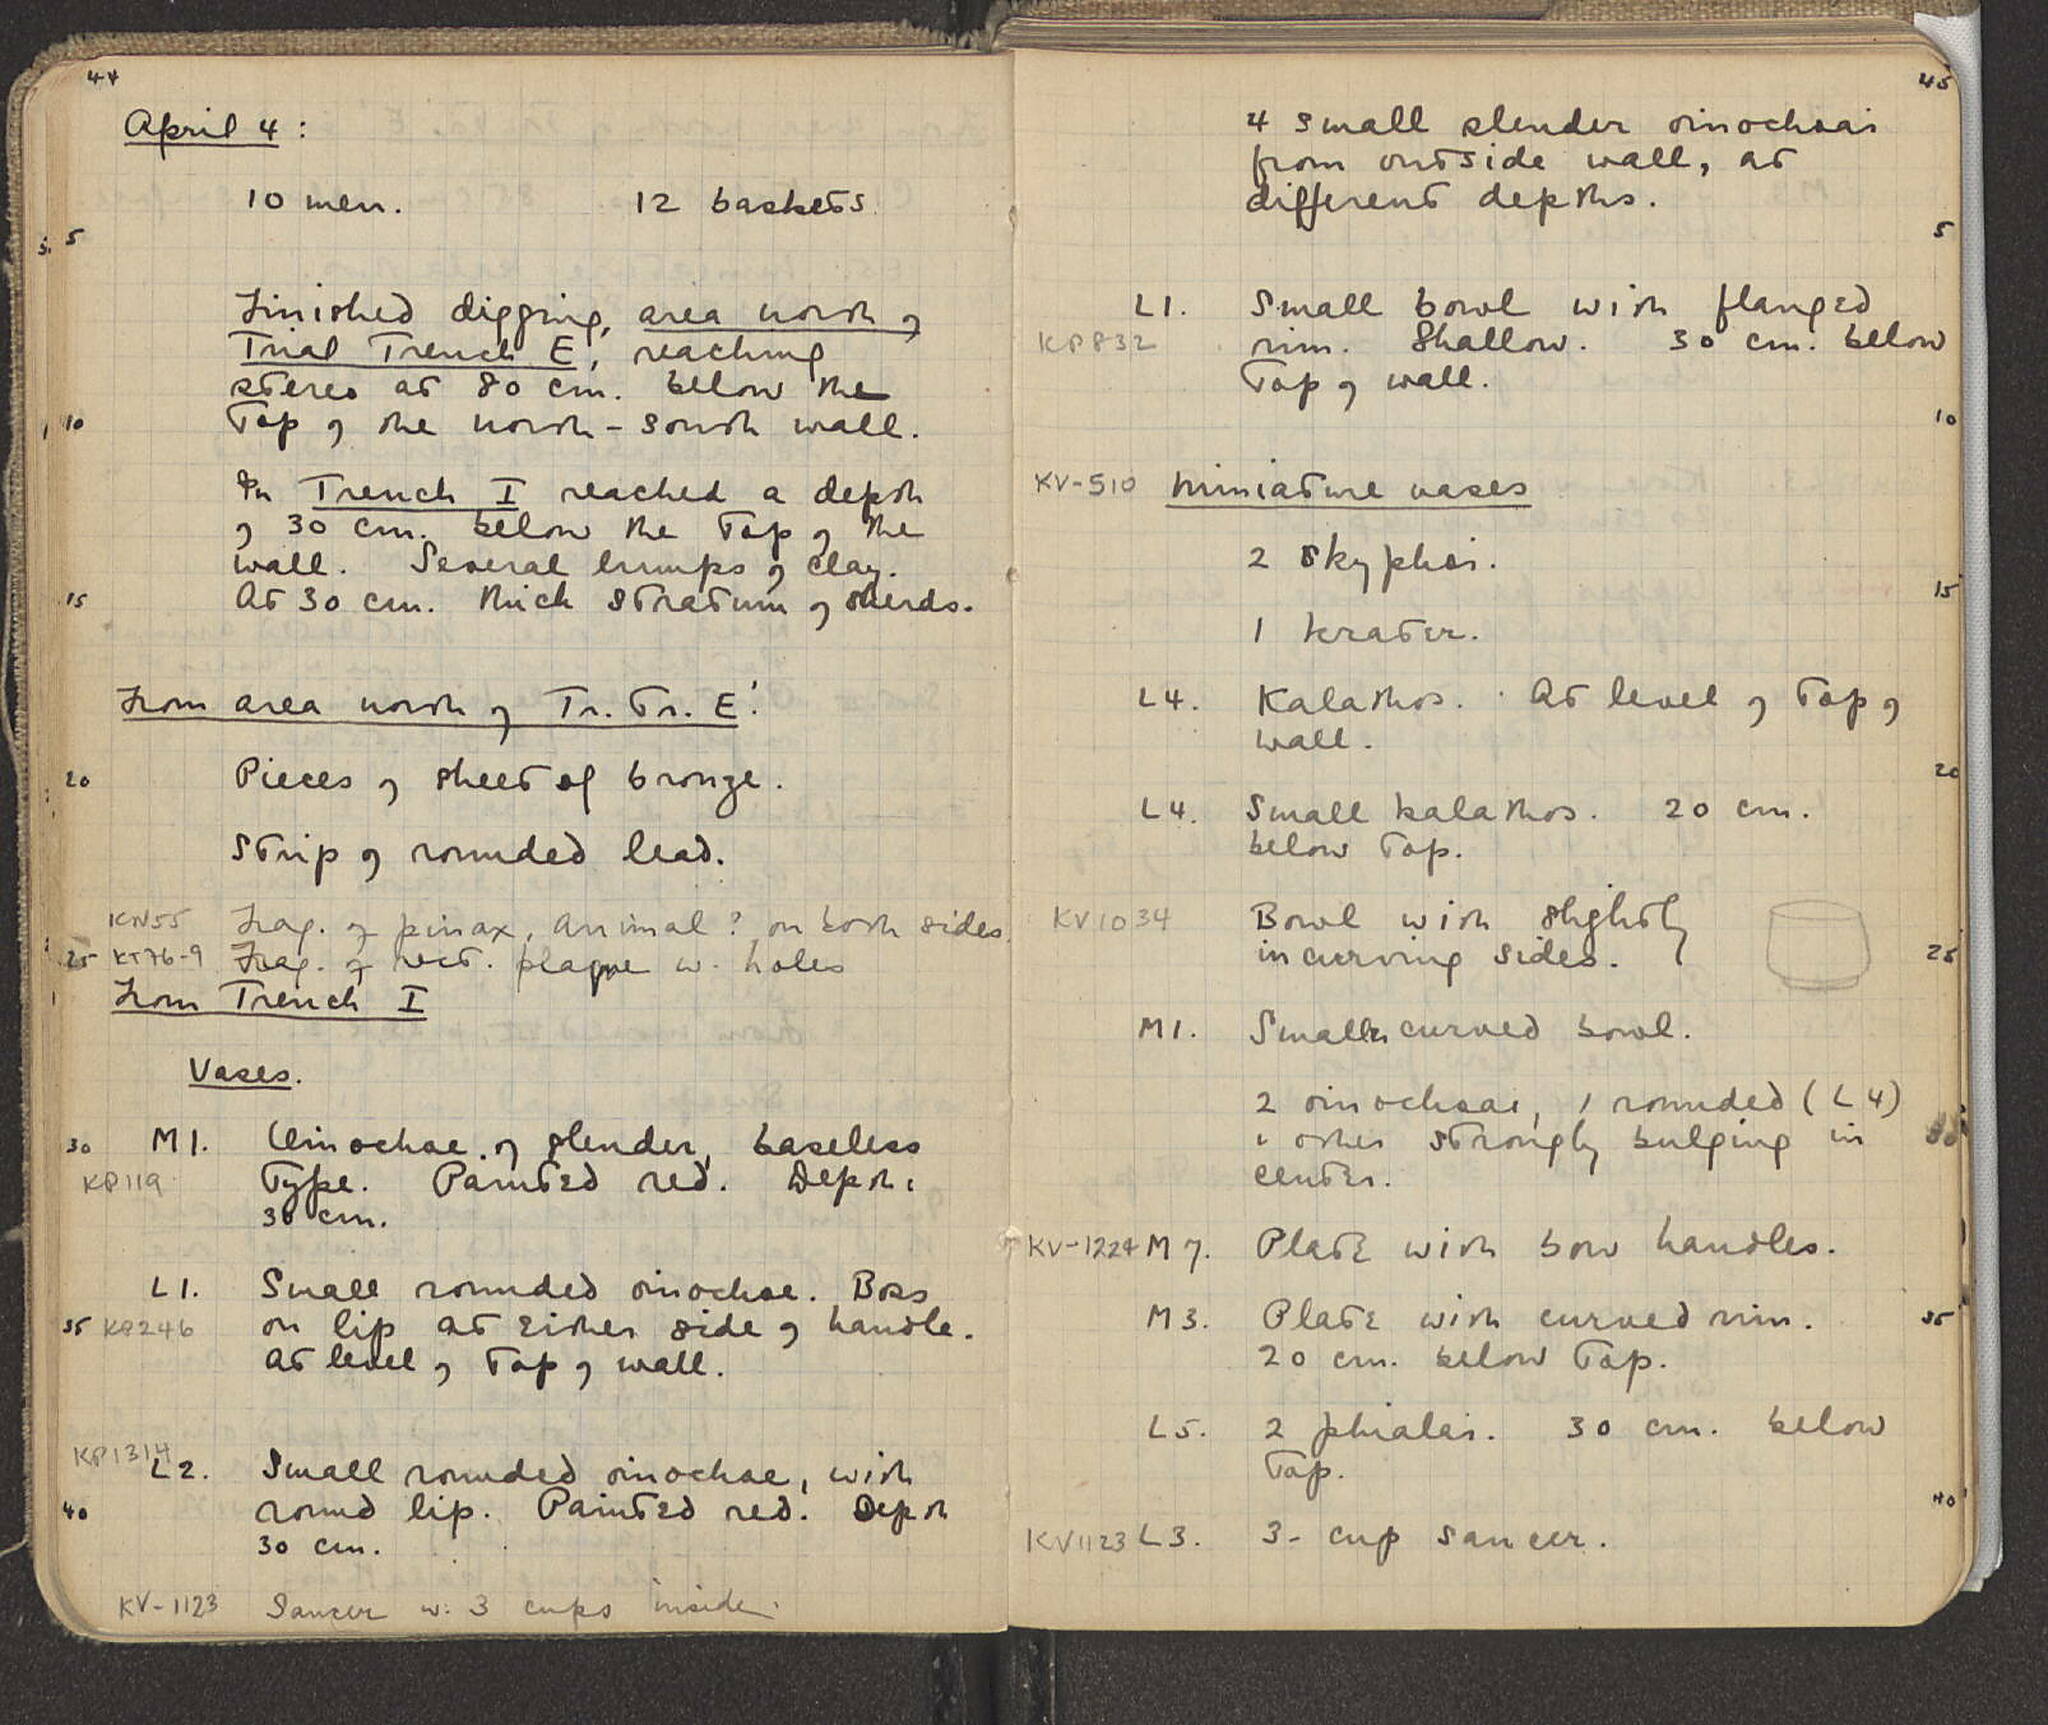 44
April 4:
10 men. 12 baskets.
5
Finished digging, area north of
Trial Trench E, reaching
stereo at 80 cm. below the
10 Top of the north-south wall.
In Trench I reached a depth
of 30 cm. below the top of the
wall. Several lumps of clay.
15 At 30 cm. thick stratum of sherds.
From area north of Tr. Tr. E:
20 Pieces of sheet of bronze.
Strip of rounded lead.
KN55 Frag. of pinax, animal? on both sides.
25 KT76-9 Frag. of rect. plaque w. holes
From Trench I
Vases.
30 M1. Oinochoe of slender, baseless
KP119 Type. Painted red. Depth:
30 cm.
L1. Small rounded oinochoe. Boss
35 KP246 on lip at either side of handle.
At level of top of wall.
KP1314
L2. Small rounded oinochoe, with
40 round lip. Painted red. Depth
30 cm.
KV-1123 Saucer w. 3 cups inside.
45
4 small slender oinochoai
from outside wall, at
different depths.
5
L1. Small bowl with flanged
KP832 rim. Shallow. 30 cm. below
Top of wall.
10
KV-510 Miniature vases
2 skyphoi.
15
1 krater.
L4. Kalathos. At level of top of
wall.
20
L4. Small kalathos. 20 cm.
below top.
KV1034 Bowl with slightly
incurving sides. 25
M1. Small curved bowl.
2 oinochoai, 1 rounded (L4)
1 other strongly bulging in 30
center.
KV-1224 M7. Plate with bow handles.
M3. Plate with curved rim. 35
20 cm. below top.
L5. 2 phialai. 30 cm. below
Top.
40
KV1123 L3. 3-cup saucer.